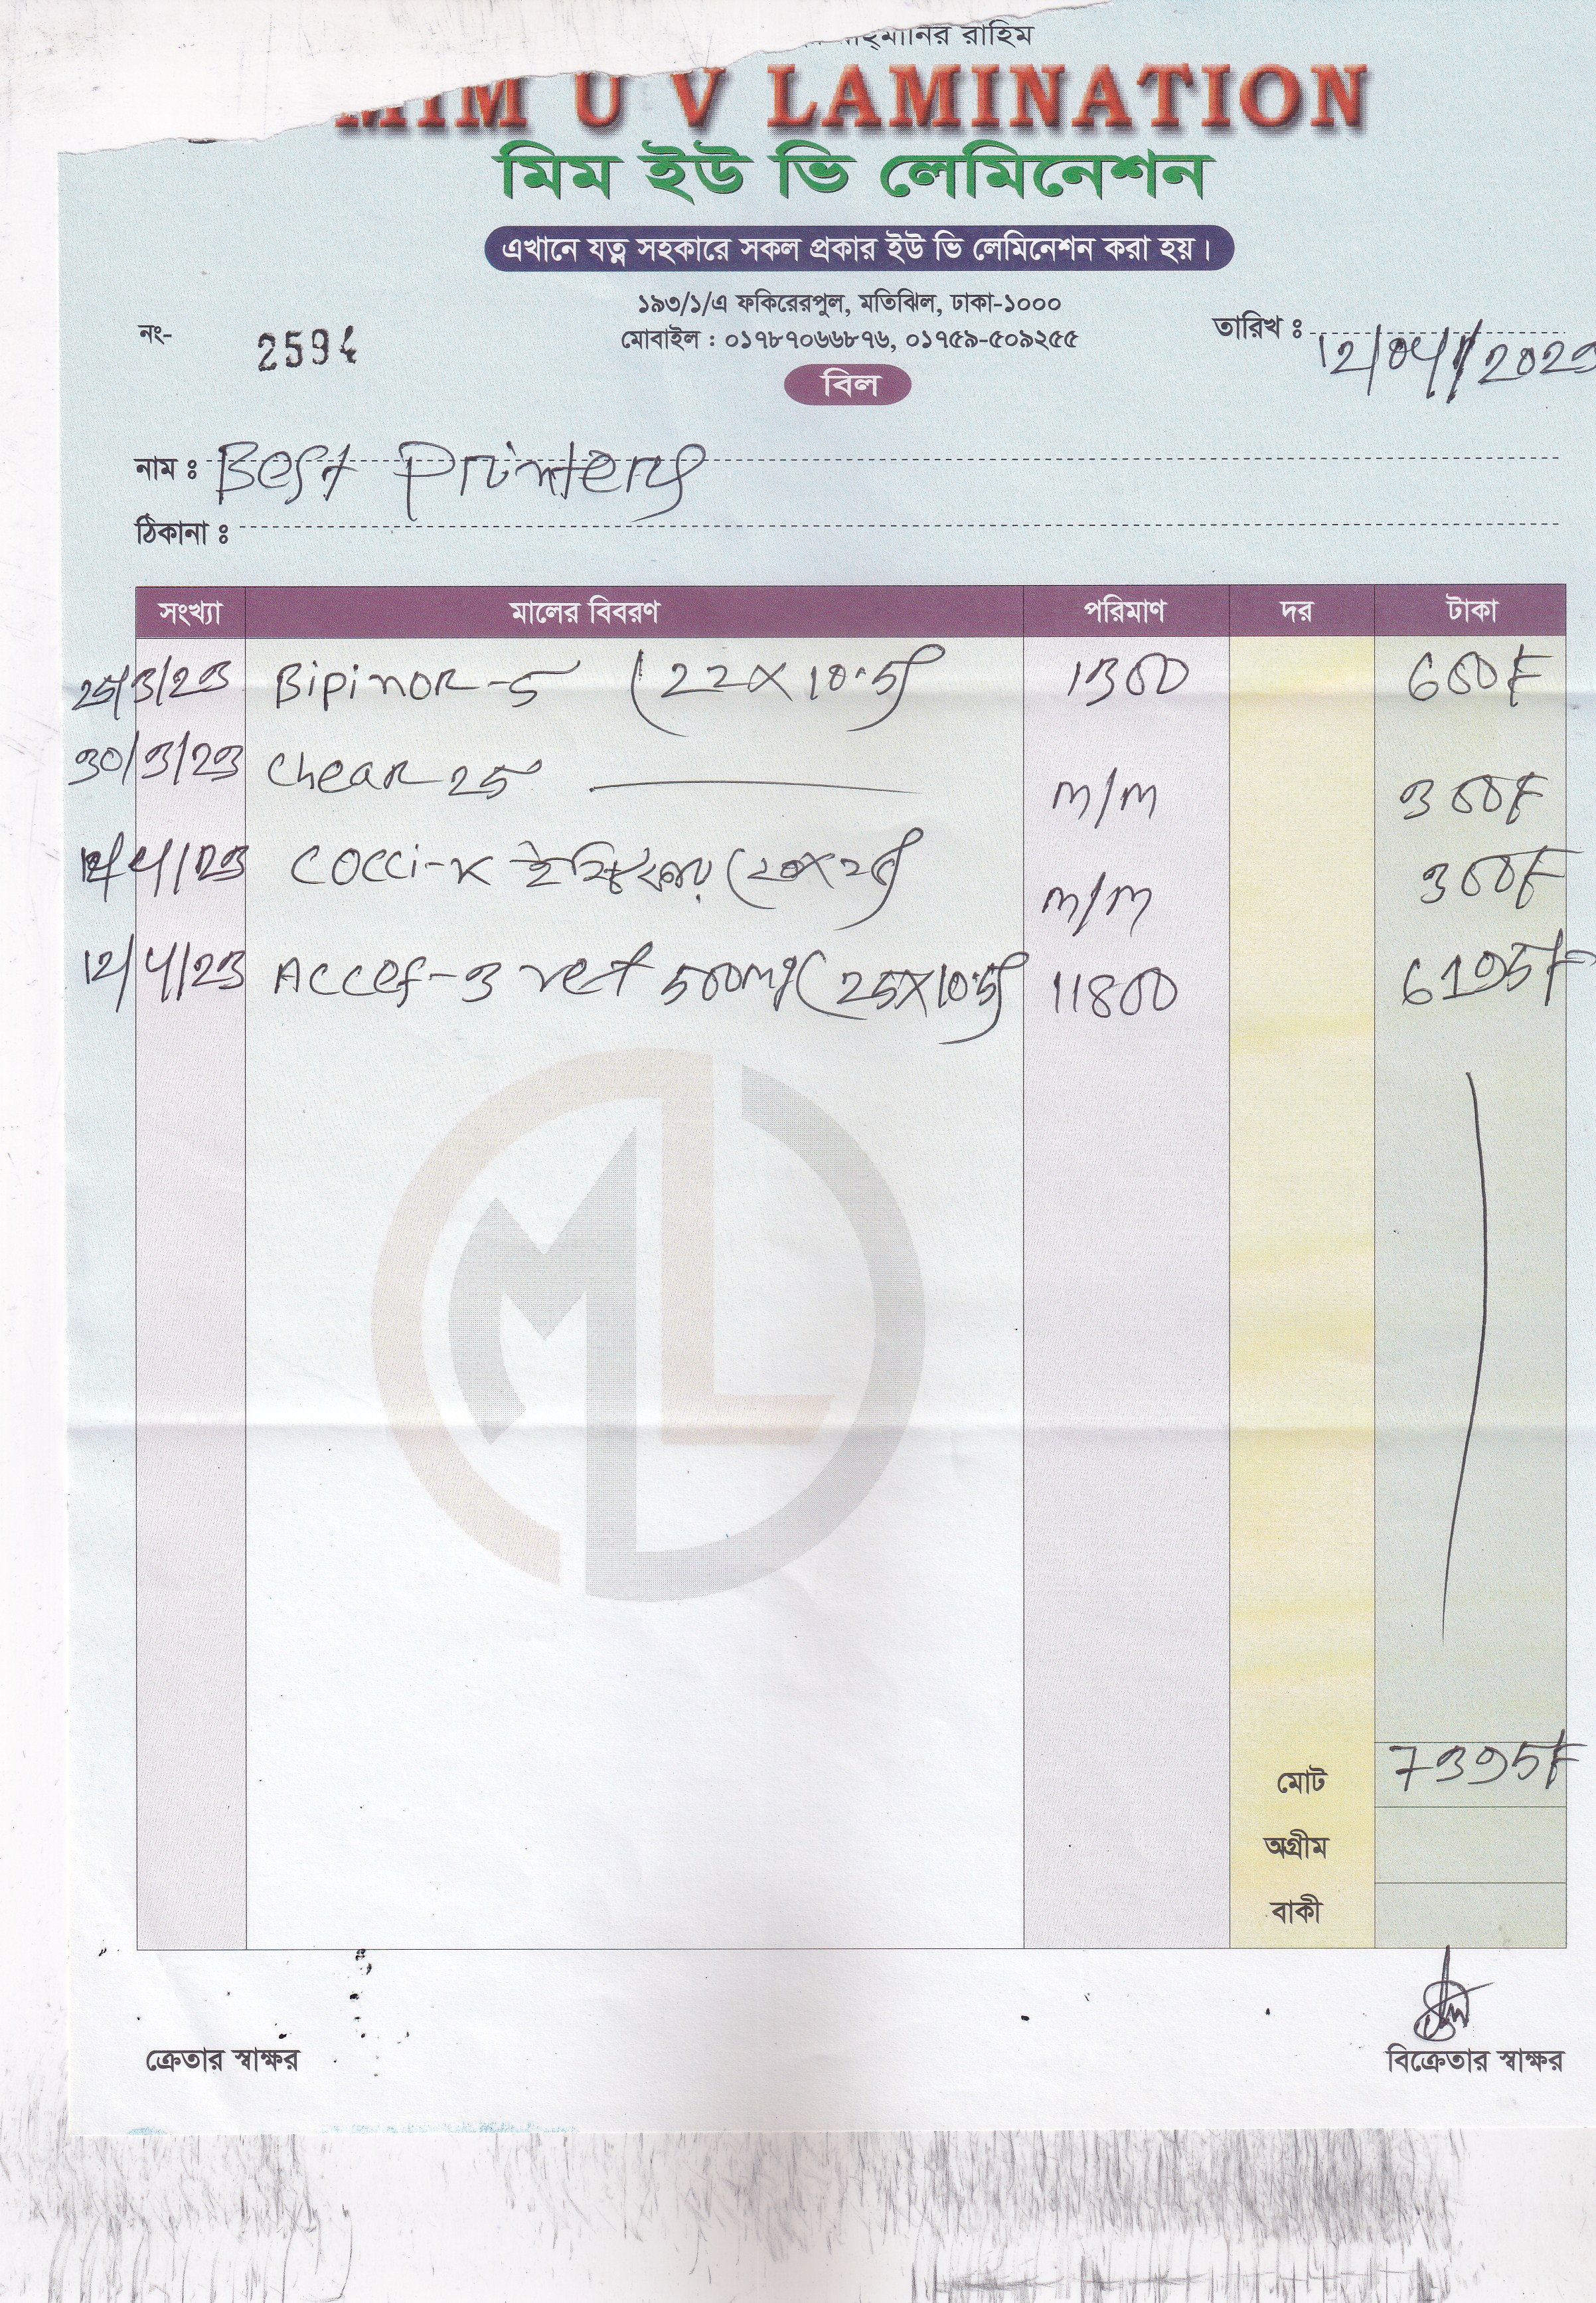 রাহিম
MIM U V LAMINATION
মিম ইউ ভি লেমিনেশন
এখানে যত্ন সহকারে সকল প্রকার ইউ ভি লেমিনেশন করা হয়।
১৯৩/১/এ ফকিরেরপুল, মতিঝিল, ঢাকা-১০০০
মোবাইল : ০১৭৮৭০৬৬৮৭৬, ০১৭৫৯-৫০৯২৫৫
নং- 2594 তারিখ ঃ 12/04/2023
বিল
নাম ঃ Best Printers
ঠিকানা ঃ
সংখ্যা মালের বিবরণ পরিমাণ দর টাকা
25/3/23 Bipinor-5 (22X10.5) 1300 600F
30/3/23 Chear 25 m/m 300F
12/4/23 COCCi-K (20X20) m/m 300F
12/4/23 ACCef-3 vet 500mg (25X10.5) 11800 6195F
মোট 7395F
অগ্রীম
বাকী
ক্রেতার স্বাক্ষর বিক্রেতার স্বাক্ষর